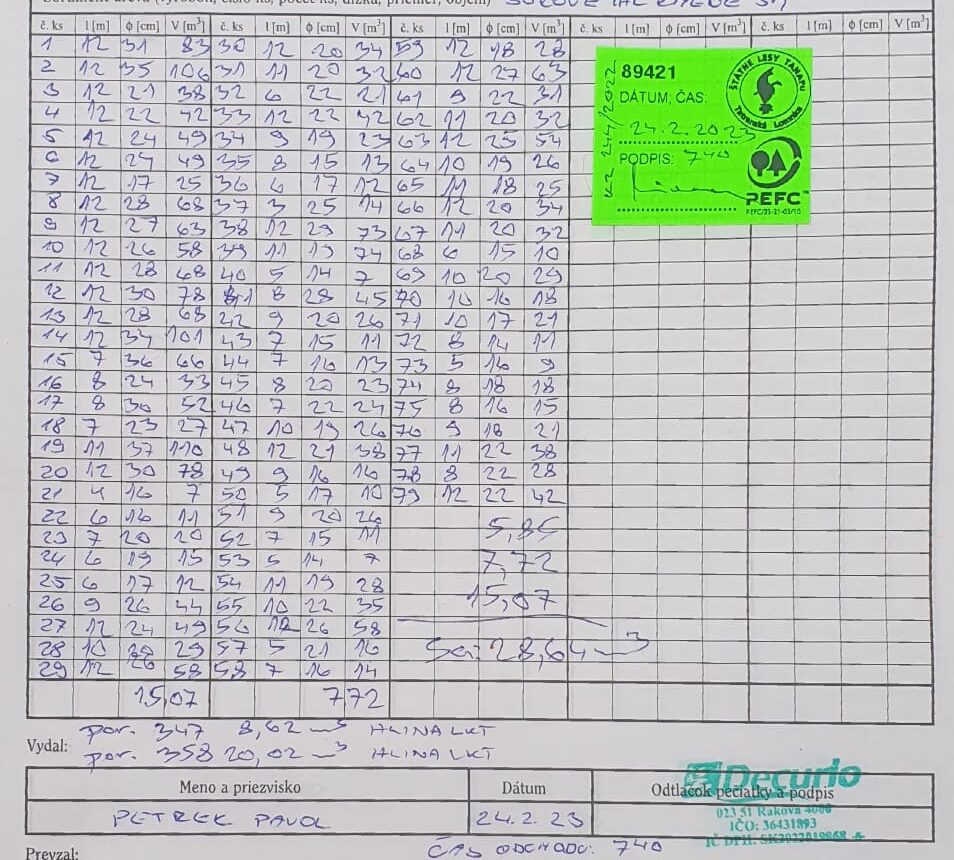 (výrobok, číslo ks, počet ks, dĺžka, priemer, objem) SUROVÉ
č. ks l [m] ϕ [cm] V [m³] č. ks l [m] ϕ [cm] V [m³] č. ks l [m] ϕ [cm] V [m³] č. ks l [m] ϕ [cm] V [m³] č. ks l [m] ϕ [cm] V [m³]
1 12 31 83 30 12 20 34 59 12 18 28
2 12 35 106 31 11 20 32 60 12 27 63
3 12 21 38 32 6 22 21 61 9 22 31
4 12 22 42 33 12 22 42 62 11 20 32
5 12 24 49 34 9 19 23 63 12 25 54
6 12 24 49 35 8 15 13 64 10 19 26
7 12 17 25 36 6 17 12 65 11 18 25
8 12 28 68 37 3 25 14 66 12 20 34
9 12 27 63 38 12 29 73 67 11 20 32
10 12 26 58 39 11 19 74 68 6 15 10
11 12 28 68 40 5 14 7 69 10 20 29
12 12 30 78 41 8 28 45 70 10 16 18
13 12 28 68 42 9 20 26 71 10 17 21
14 12 34 101 43 7 15 11 72 8 14 11
15 7 36 66 44 7 16 13 73 5 16 9
16 8 24 33 45 8 20 23 74 8 18 18
17 8 30 52 46 7 22 24 75 8 16 15
18 7 23 27 47 10 19 26 76 9 18 21
19 11 37 110 48 12 21 38 77 11 22 38
20 12 30 78 49 9 16 16 78 8 22 28
21 4 16 7 50 5 17 10 79 12 22 42
22 6 16 11 51 9 20 26 5,85
23 7 20 20 52 7 15 11
24 6 19 15 53 5 14 7 7,72
25 6 17 12 54 11 19 28
26 9 26 44 55 10 22 35 15,07
27 12 24 49 56 12 26 58
28 10 29 57 5 21 16 Sa: 28,64 m³
29 12 26 58 58 7 16 14
15,07 772
89421
DÁTUM, ČAS:
24.2.2023
PODPIS: 740
KZ 247/2022
ŠTÁTNE LESY TANAPU
Tatranská Lomnica
PEFC™
PEFC/23-21-03/15
Vydal:
por. 347 8,62 m³ HLINA LKT
por. 358 20,02 m³ HLINA LKT
Meno a priezvisko Dátum Odtlačok pečiatky a podpis
PETREK PAVOL 24.2.23
Decurio
023 51 Raková 4000
IČO: 36431893
IČ DPH: SK2022019868
Prevzal: ČAS ODCHODU: 740